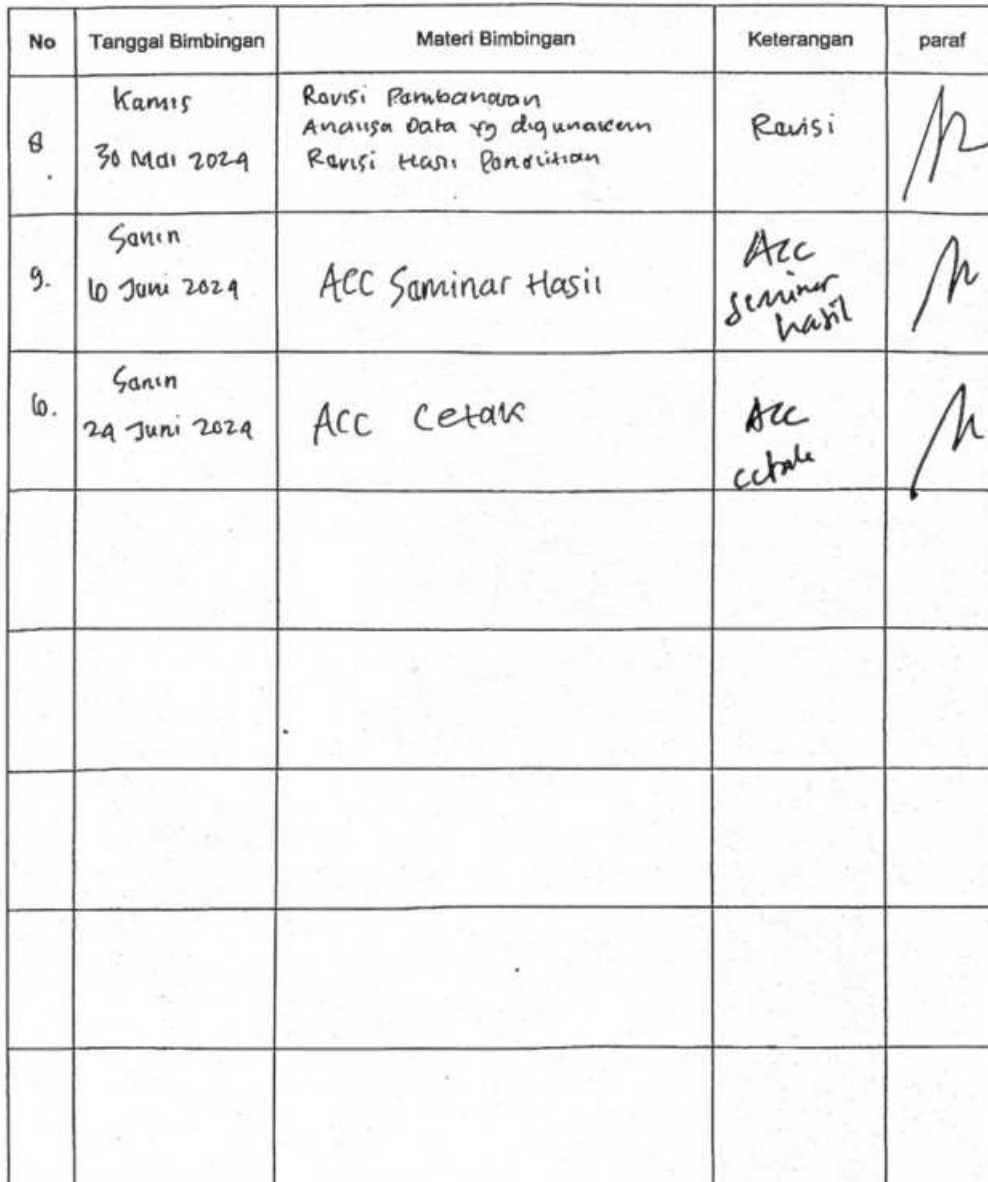 No Tanggal Bimbingan Materi Bimbingan Keterangan paraf
8.
Kamis
30 Mei 2024
Revisi Pembahasan
Analisa Data yg digunakan
Revisi Hasil Penelitian
Revisi
9.
Senin
10 Juni 2024
ACC Seminar Hasil
Acc
seminar
hasil
10.
Senin
24 Juni 2024
ACC Cetak
Acc
cetak